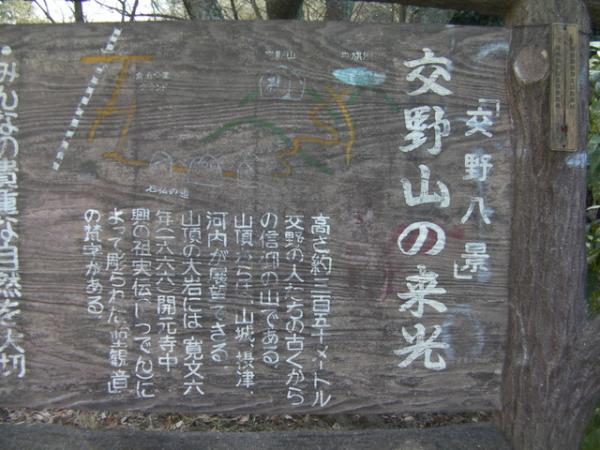 「交野八景」
交野山の来光
高さ約三百五十メートル
交野の人たちの古くから
の信仰の山である
山頂からは、山城、摂津、
河内が展望できる
山頂の大岩には 寛文六
年(一六六六)開元寺中
興の祖実伝(じつでん)に
よって彫られた「聖観音」
の梵字がある
交野山
石仏の道
みんなの貴重な自然を大切